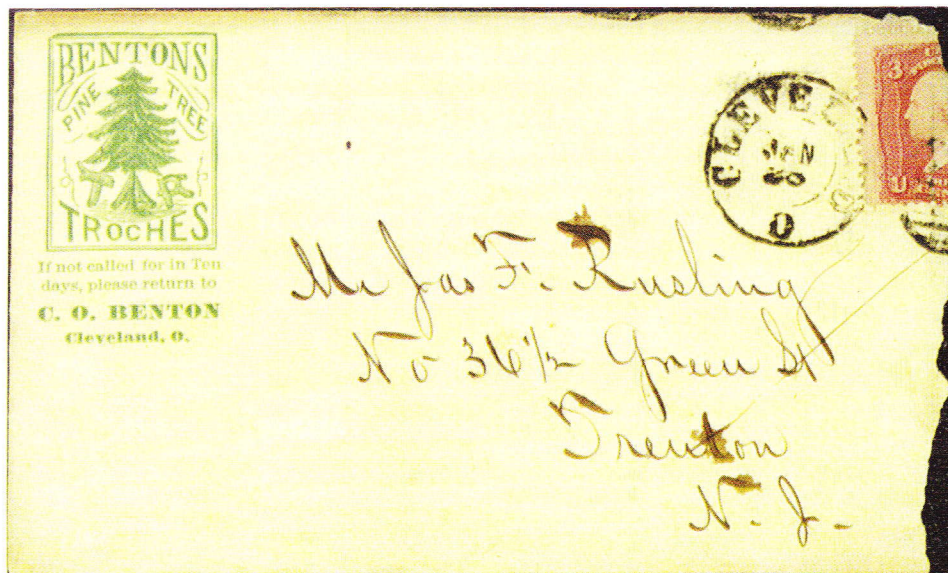 BENTONS
PINE TREE
TAR
TROCHES
If not called for in Ten
days, please return to
C. O. BENTON
Cleveland, O.
CLEVELAND
JAN
O
3
U
Mr Jas F. Rusling
No 36 1/2 Green St
Trenton
N. J.